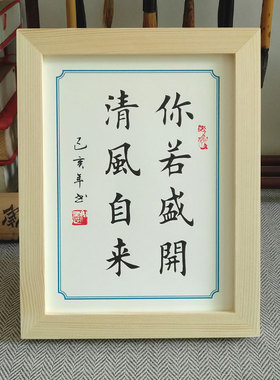 你若盛開
清風自来
己亥年书